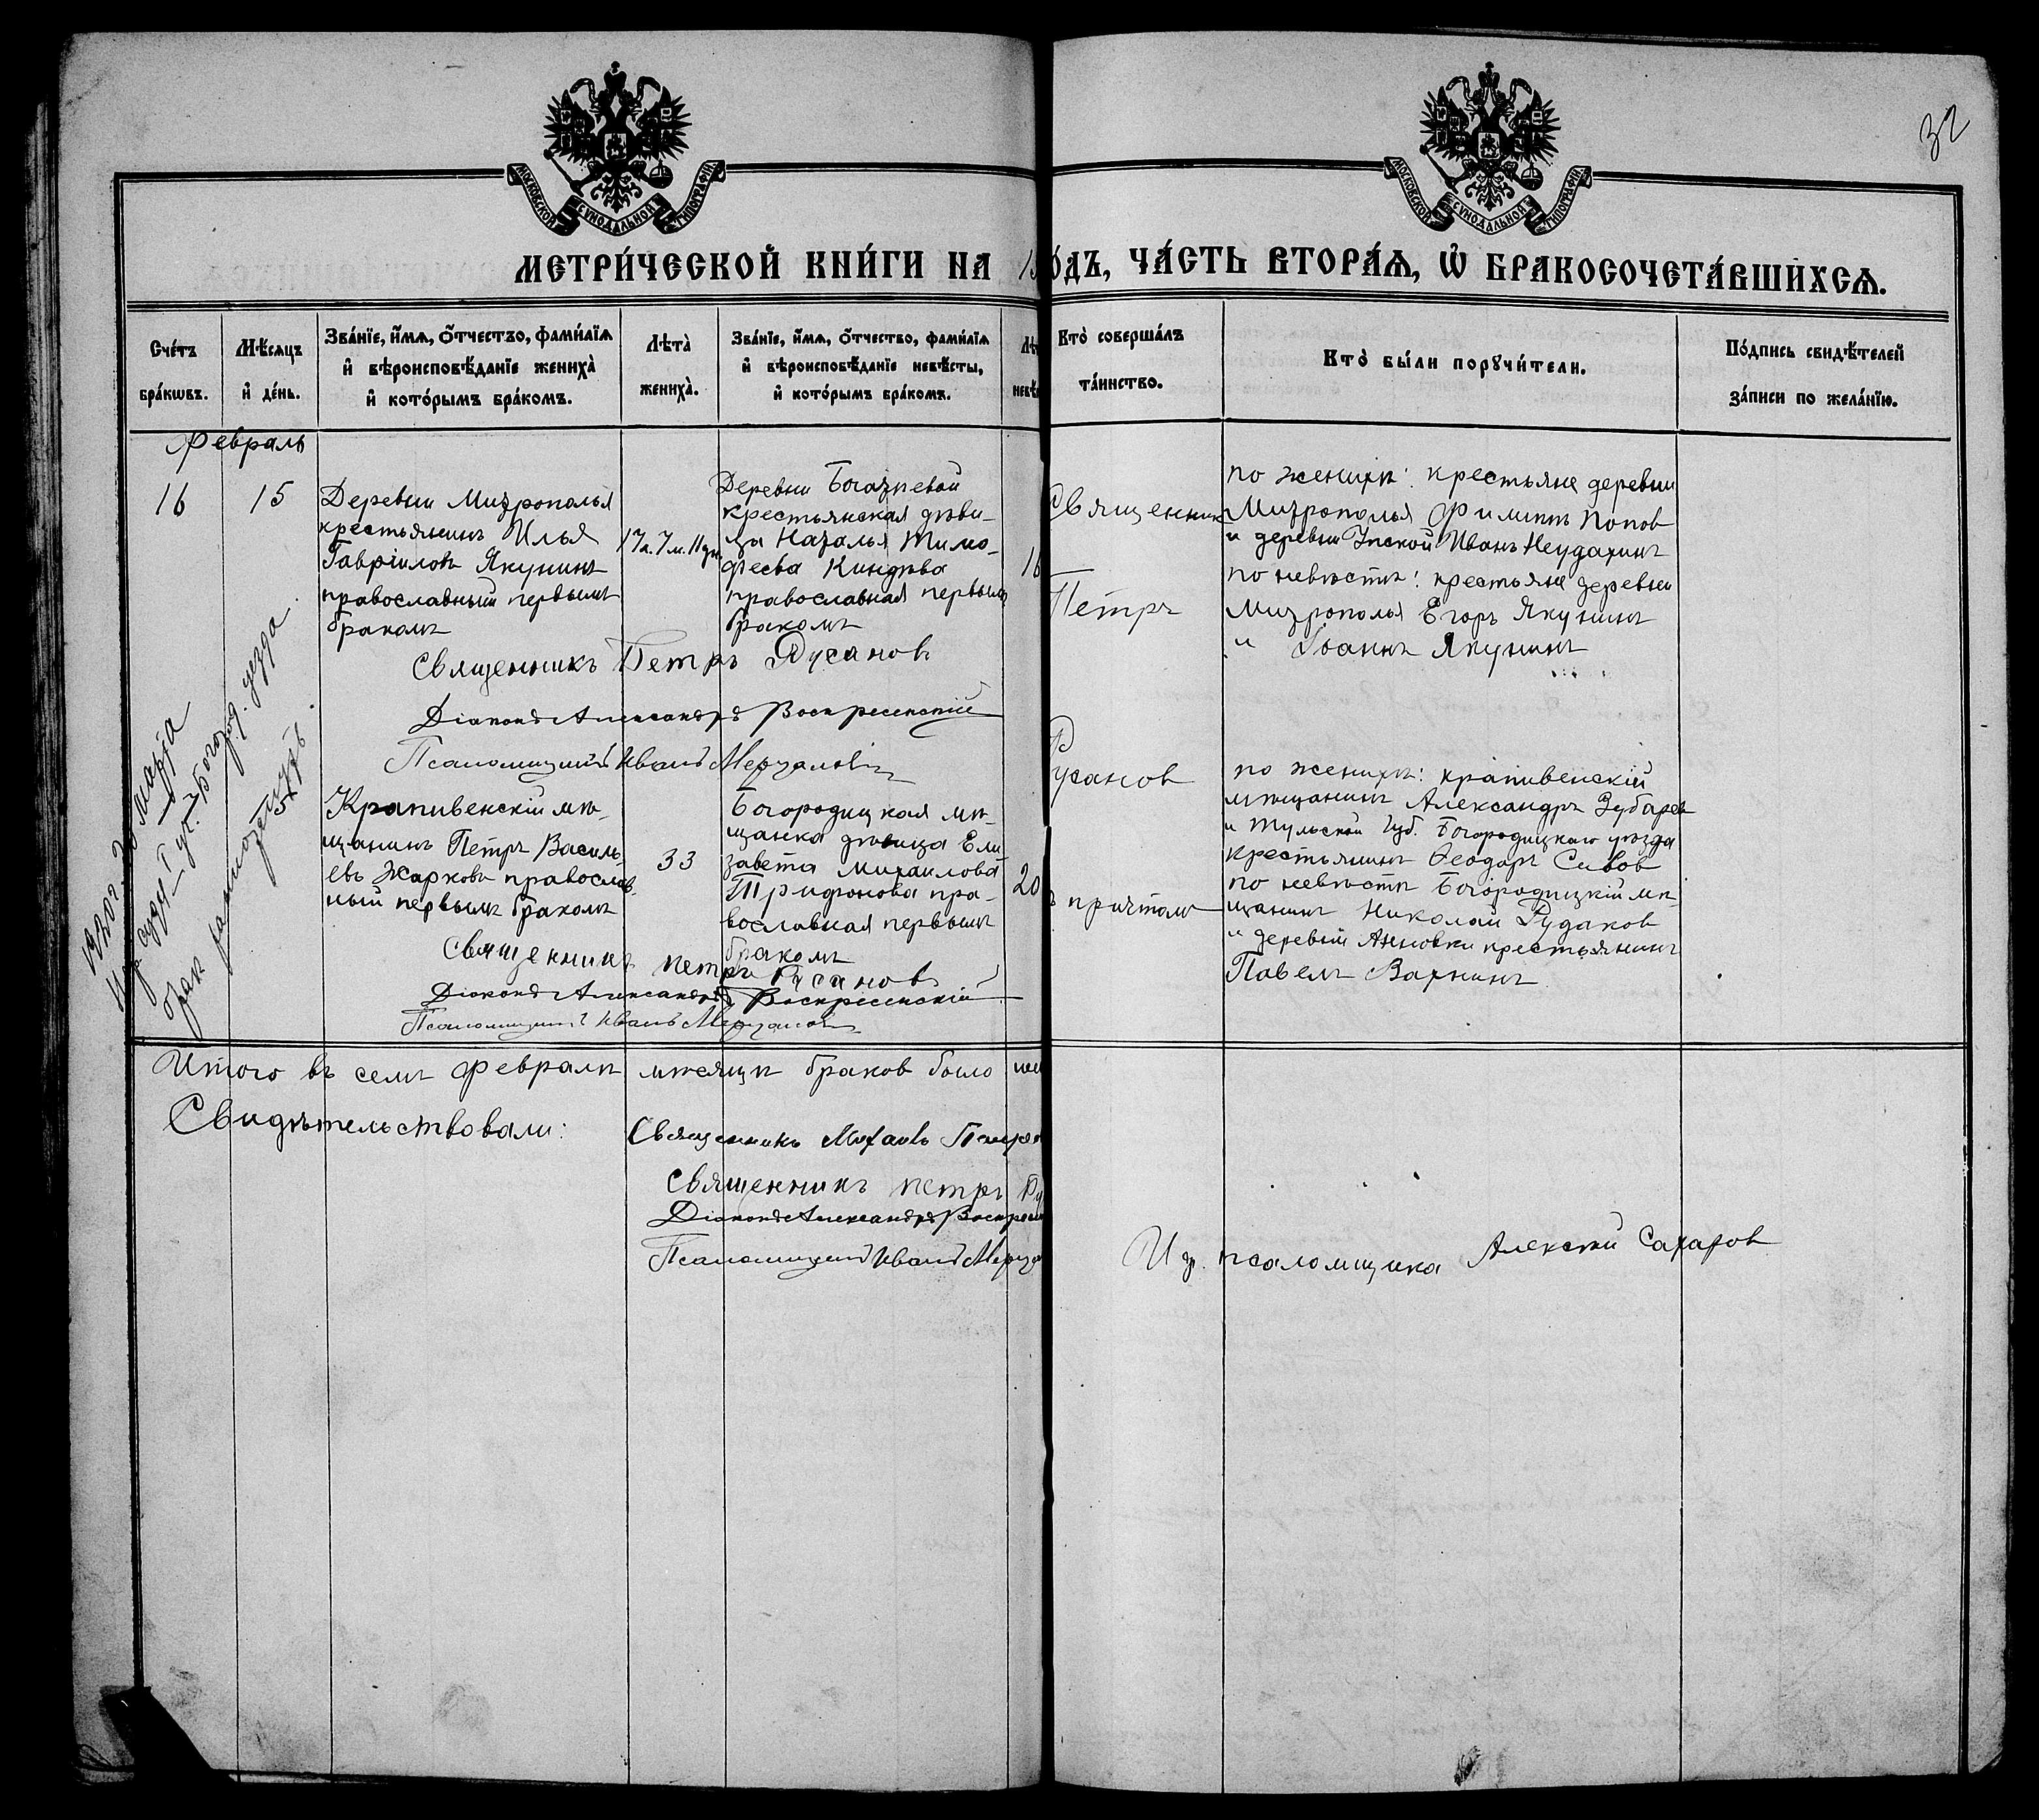 32
МОСКОВСКОЙ СѴНОДАЛЬНОЙ ТИПОГРАФІИ
МОСКОВСКОЙ СѴНОДАЛЬНОЙ ТИПОГРАФІИ
МЕТРИ́ЧЕСКОЙ КНИ́ГИ НА 1
О́ДЪ, ЧА́СТЬ ВТОРА́Ѧ, Ѡ҆ БРАКОСОЧЕТА́ВШИХСѦ.
Сче́тъ бра́кѡвъ.
Мѣ́сѧцъ и҆ де́нь.
Зва́нїе, и҆́мѧ, ѻ҆́тчество, фами́лїѧ
и҆ вѣроисповѣ́данїе жениха̀
и҆ кото́рымъ бра́комъ.
Лѣта̀ жениха̀.
Зва́нїе, и҆́мѧ, ѻ҆́тчество, фами́лїѧ
и҆ вѣроисповѣ́данїе невѣ́сты,
и҆ кото́рымъ бра́комъ.
Лѣ
невѣ
Кто̀ соверша́лъ
та́инство.
Кто̀ бы́ли порꙋчи́тели.
По́дпись свидѣ́телей
за́писи по жела́нїю.
Февраль
16
15
Деревни Митрополья
крестьянинъ Илья
Гавріиловъ Якунинъ
православный первымъ
бракомъ
17 л. 7 м. 11 дн.
Деревни
крестьянская дѣви-
ца Наталья Тимо-
феева Киндѣева
православная первымъ
бракомъ
16
Священникъ
Петръ
Русановъ
причтомъ
по женихѣ: крестьяне деревни
Митрополья Филиппъ Попов
и деревни Упской Иванъ Неудахинъ
по невѣстѣ: крестьяне деревни
Митрополья Егоръ Якунинъ
и Іоаннъ Якунинъ
Священникъ Петръ Русановъ
Діаконъ Александръ Воскресенскій
Псаломщикъ Иванъ Мерцаловъ
Крапивенскій мѣ-
щанинъ Петръ Василь-
евъ Жарковъ православ-
ный первымъ бракомъ
33
Богородицкая мѣ-
щанка дѣвица Ели
завета Михаилова
Трифонова пра-
вославная первымъ
бракомъ
20
по женихѣ: крапивенскій
мѣщанинъ Александръ Зубарев
и Тульской Губ. Богородицкаго уѣзда
крестьянинъ Ѳеодоръ Сивов
по невѣстѣ Богородицкій мѣ-
щанинъ Николай Рудаков
и деревни Анновки крестьянинъ
Павелъ Вахнинъ
Священникъ Петръ Русановъ
Діаконъ Александръ Воскресенскій
Псаломщикъ Иванъ Мерцаловъ
1920 г 20 марта
Нар. суду
Богород. уезда
брак расторгнутъ.
Итого въ семъ Февралѣ мѣсяцѣ браков было
Свидѣтельствовали:
Священникъ Михаилъ
Священникъ Петръ Ру
Діаконъ Александръ Воскресен
Псаломщикъ Иванъ Мерца
И д. псаломщика Алексѣй Сахаров